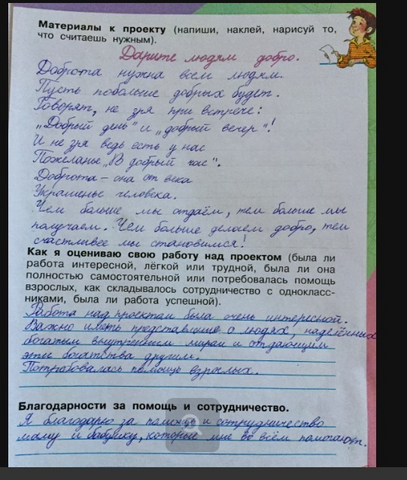 Материалы к проекту (напиши, наклей, нарисуй то,
что считаешь нужным).
Дарите людям добро.
Доброта нужна всем людям.
Пусть побольше добрых будет.
Говорят, не зря при встрече:
„Добрый день" и „добрый вечер"!
И не зря ведь есть у нас
Пожеланье „В добрый час".
Доброта – она от века
Украшенье человека.
Чем больше мы отдаём, тем больше мы
получаем. Чем больше делаем добро, тем
счастливее мы становимся!
Как я оцениваю свою работу над проектом (была ли
работа интересной, лёгкой или трудной, была ли она
полностью самостоятельной или потребовалась помощь
взрослых, как складывалось сотрудничество с однокласс-
никами, была ли работа успешной).
Работа над проектом была очень интересной.
Важно иметь представление о людях, наделённых
богатым внутренним миром и отдающим
эти богатства другим.
Потребовалась помощь взрослых.
Благодарности за помощь и сотрудничество.
Я благодарю за помощь и сотрудничество
маму и бабушку, которые мне во всём помогают.